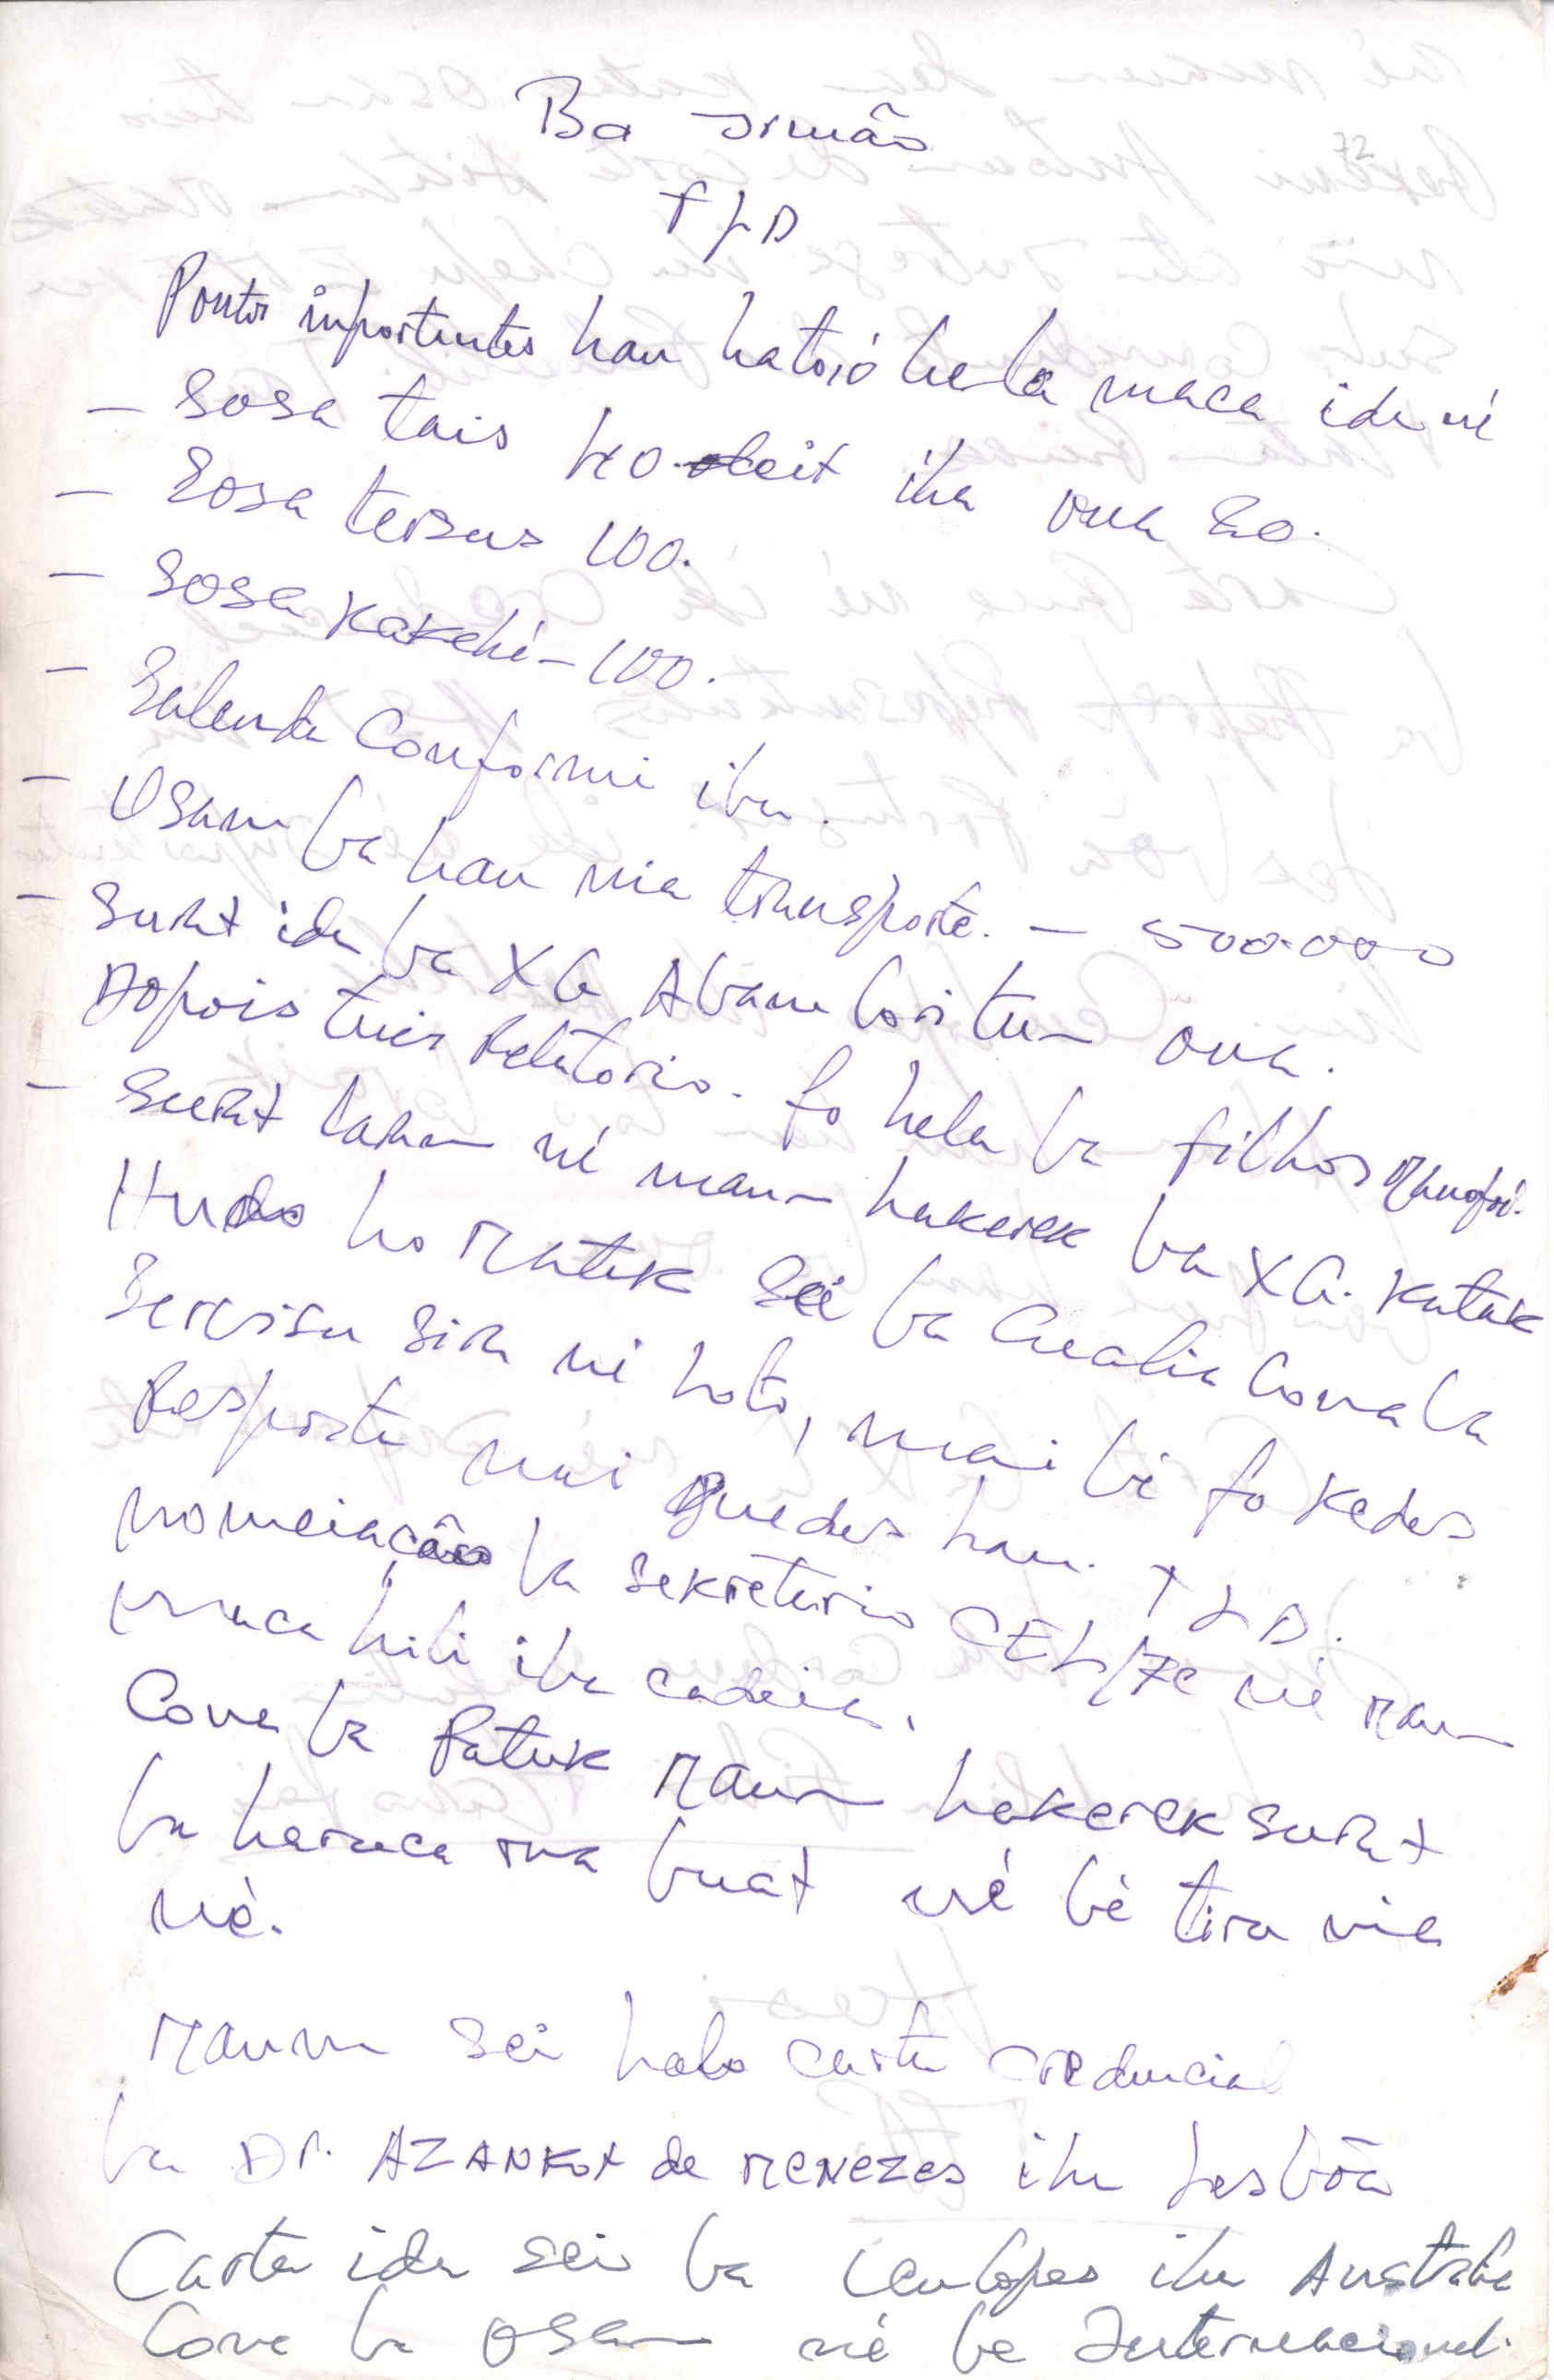 Ba simão
TLD
72
Pontos inportentes hau hatoió hela maca ida né
- Sosa tais ho leit iha rua 20.
- Sosa tersus 100.
- Sosa Kakehi - 100.
- Salenda Conformi iha.
- Osam ba hau nia transporte. - 500.000
- Surat ida ba XG Abam lori tun rua.
Dopois tuir Relatorio. fo hela ba filhos Manofoi.
- Surat lahan né maun hakerek ba XG. Katak
Hudo ho Matak Sei ba Cualia Cona ba
Servisu sira né hoto, mai bé fo Kedes
Resposta mai Guedes hau. TLD.
nomeiação ba sekretario CEL/FC né Maun
maca hili iha cadeia.
Cona ba Patuk Maun hakerek surat
ba haruca rua buat né bé tira nia
né.
Maun Sei halo carta credencial
ba Dr. AZANKOT de MENEZES iha Lesbôa
Carta ida sei ba Leulopes iha Australia
Cona ba OSan né be Internacional.